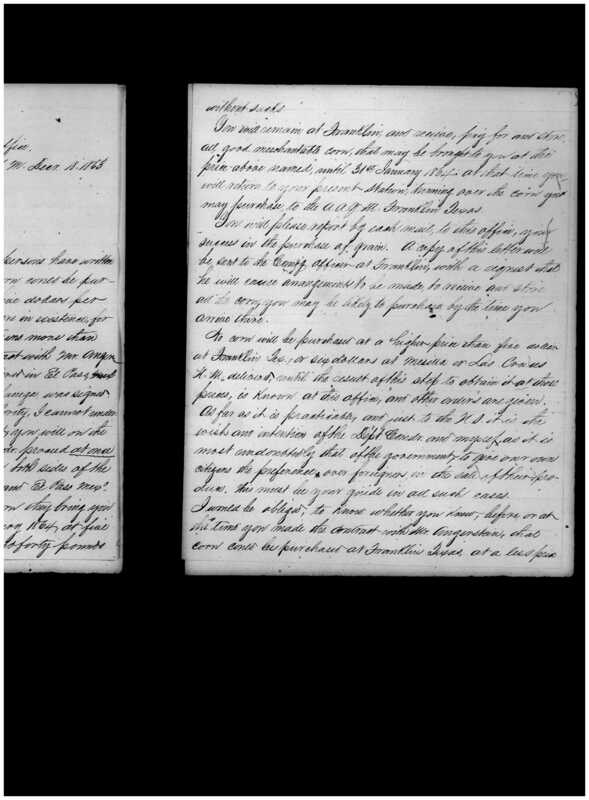 ffice.
M. Decr. 18. 1863
persons have written
corn could be pur-
five dollars per
in existence, for
more than
with Mr. Anger
in El Paso
was signed
I cannot under
you will on the
proceed at once
both sides of the
and El Paso Mexo.
corn they bring you
1864, at five
forty pounds
without sacks
You will remain at Franklin, and receive, pay for and store
all good merchantable corn, that may be brought to you at the
price above named, until 31st January 1864. at that time you
will return to your present station, turning over the corn you
may purchase, to the A A Q M. Franklin Texas.
You will please report by each mail, to this office, your
success in the purchase of grain. A copy of this letter will
be sent to the Comdg officer at Franklin, with a request that
he will cause arrangements to be made to receive and store
all the corn, you may be likely to purchase by the time you
arrive there.
No corn will be purchased at a higher price than five dollars
at Franklin Tex, or six dollars at Mesilla or Las Cruces
N. M. delivered, until the result of this step to obtain it at those
prices, is known at this office, and other orders are given.
As far as it is practicable, and just to the U S it is the
wish and intention of the Dept Comdr. and myself, as it is
most undoubtedly that of the government, to give our own
citizens the preference, over foreigners in the sale of their pro-
duce, this must be your guide in all such cases.
I would be obliged, to know whether you knew, before or at
the time you made the contract with Mr. Angerstein, that
corn could be purchased at Franklin Texas, at a less price